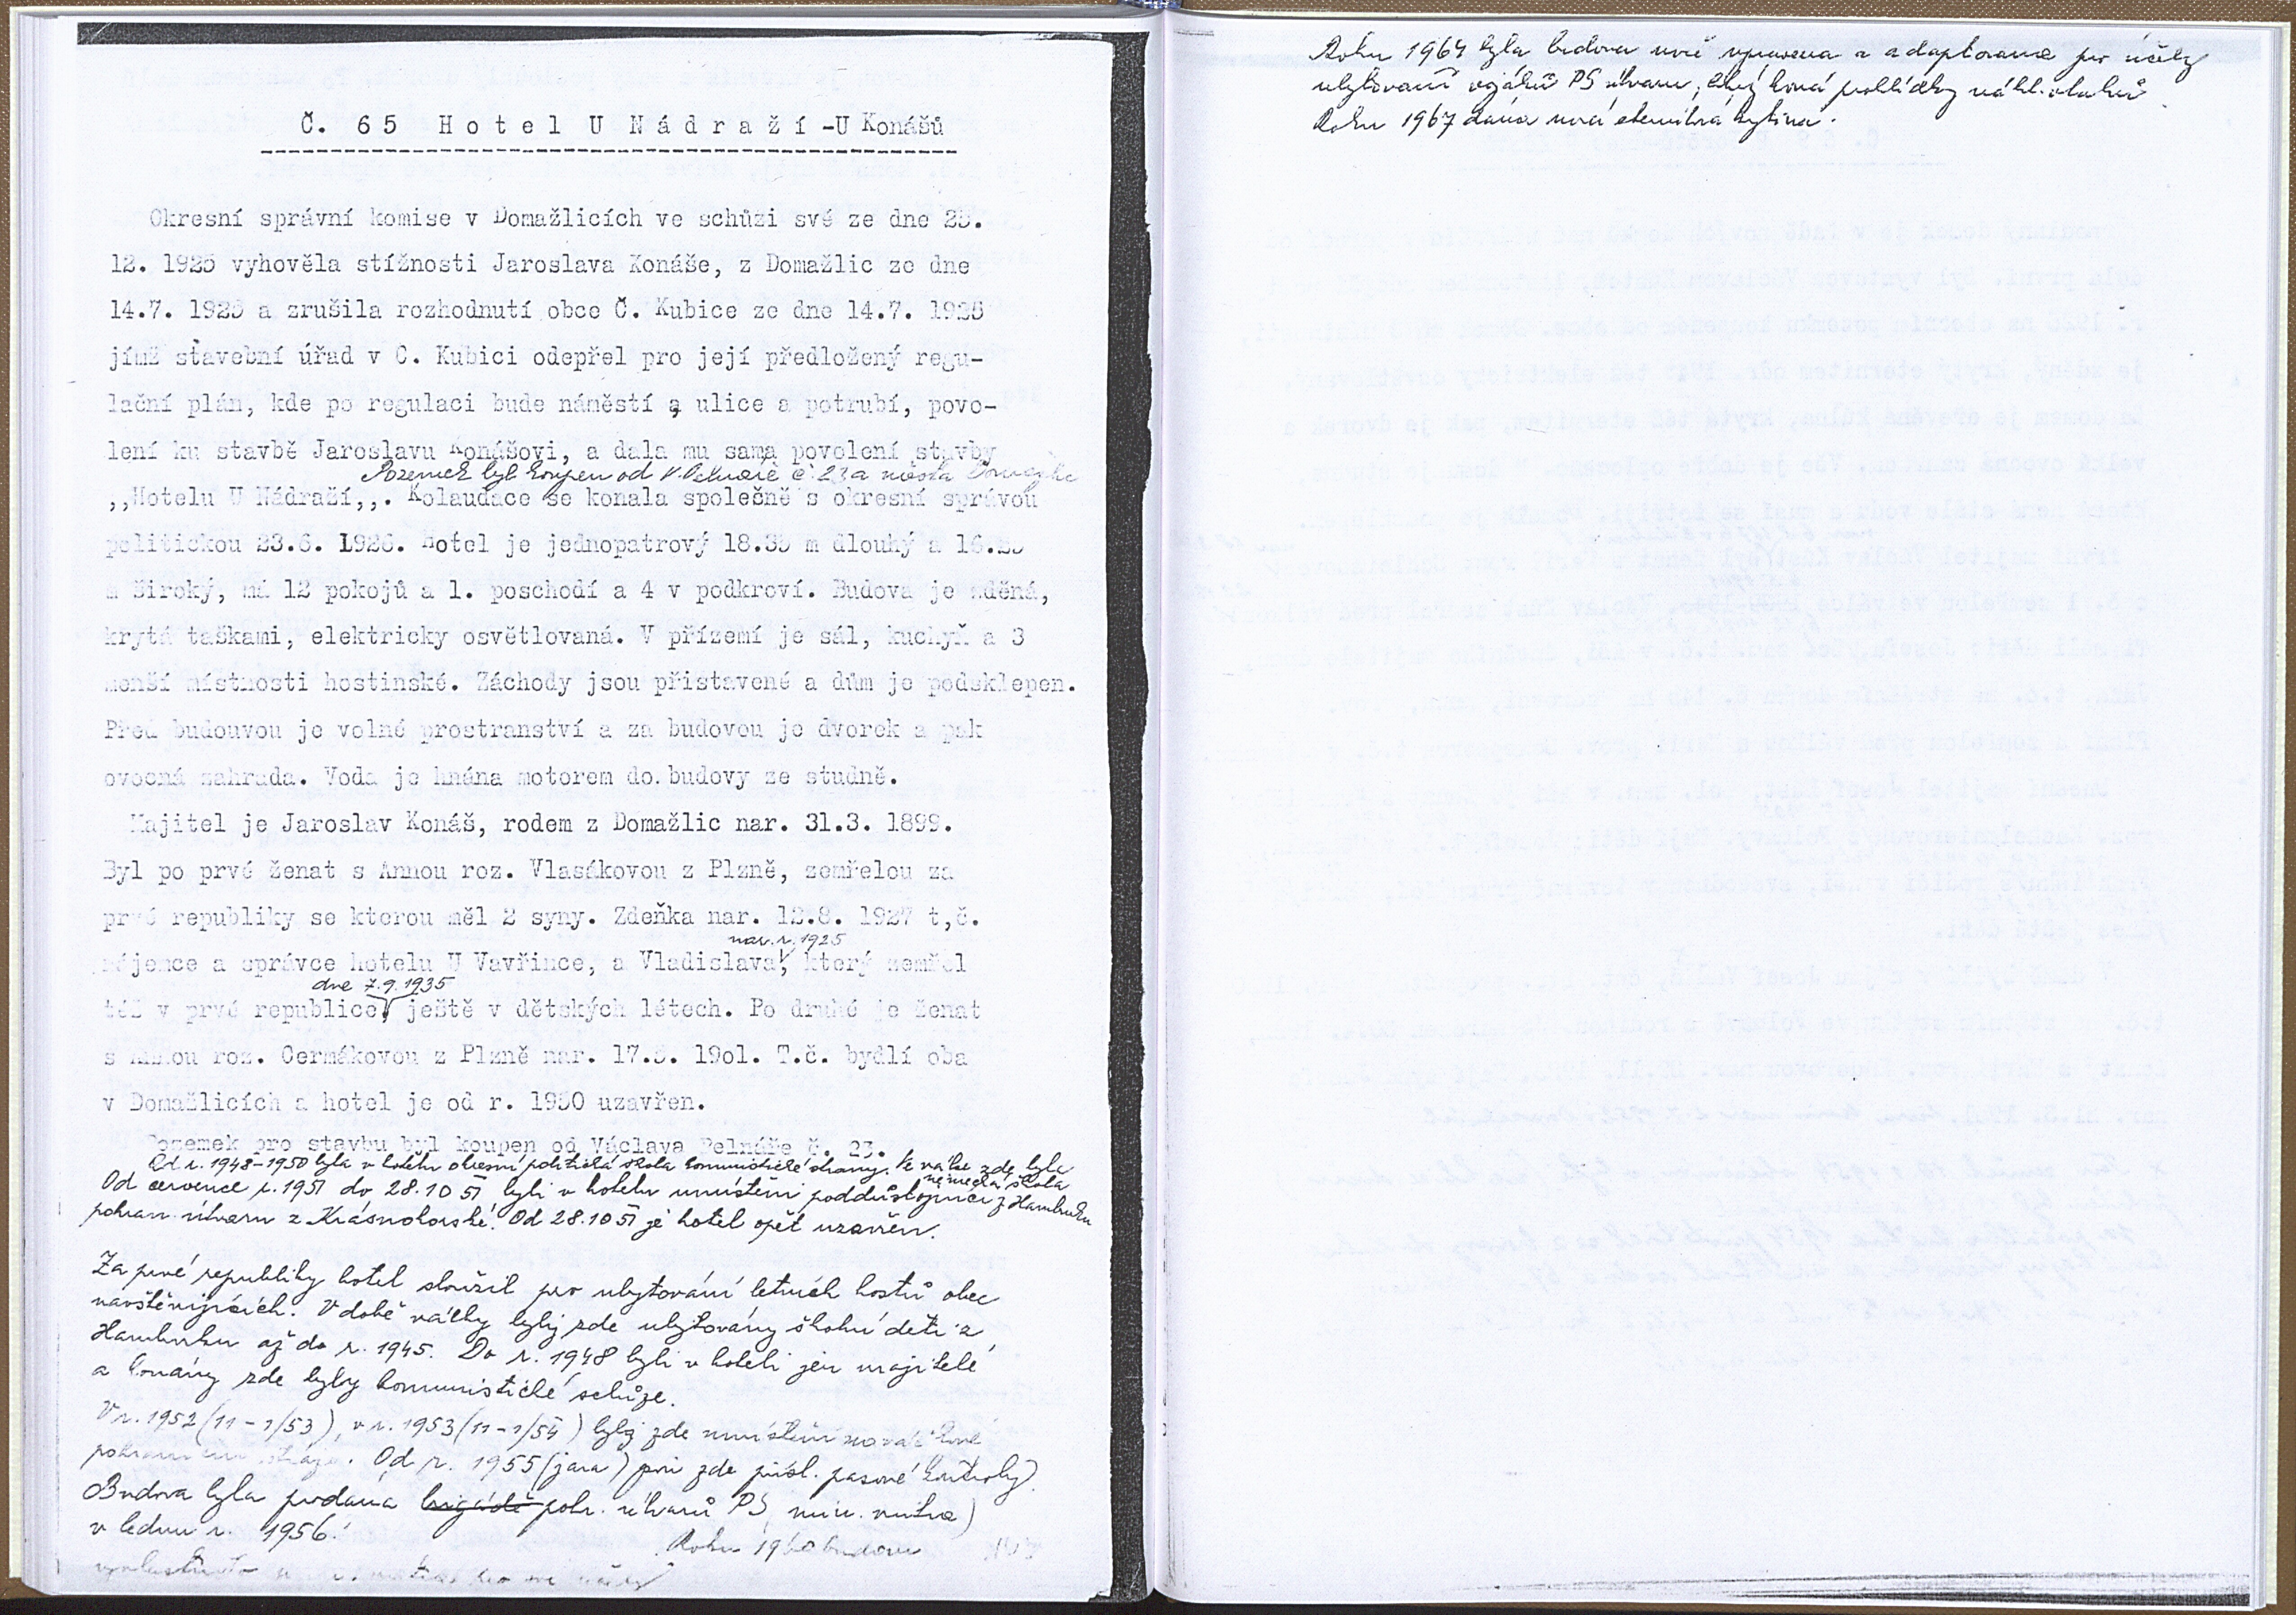 Č. 65 Hotel U Nádraží -U Konášů
Okresní správní komise v Domažlicích ve schůzi své ze dne 23.
12. 1925 vyhověla stížnosti Jaroslava Konáše, z Domažlic ze dne
14.7. 1925 a zrušila rozhodnutí obce Č. Kubice ze dne 14.7. 1925
jímž stavební úřad v C. Kubici odepřel pro její předložený regu-
lační plán, kde po regulaci bude náměstí a ulice a potrubí, povo-
lení ku stavbě Jaroslavu Konášovi, a dala mu sama povolení stavby
Pozemek byl koupen od V. Pelnáře č. 23 a města Domažlic
,,Hotelu U Nádraží,,. Kolaudace se konala společně s okresní správou
politickou 23.6. 1926. Hotel je jednopatrový 18.35 m dlouhý a
m široký, má 12 pokojů a 1. poschodí a 4 v podkroví. Budova je zděná,
krytá taškami, elektricky osvětlovaná. V přízemí je sál, kuchyň a 3
menší místnosti hostinské. Záchody jsou přistavené a dům je podsklepen.
Před budouvou je volné prostranství a za budovou je dvorek a pak
ovocná zahrada. Voda je hnána motorem do budovy ze studně.
Majitel je Jaroslav Konáš, rodem z Domažlic nar. 31.3. 1899.
Byl po prvé ženat s Annou roz. Vlasákovou z Plzně, zemřelou za
prvé republiky se kterou měl 2 syny. Zdeňka nar. 12.8. 1927 t,č.
nar. r. 1925
nájemce a správce hotelu U Vavřince, a Vladislava, který zemřel
dne 7.9.1935
též v prvé republice, ještě v dětských létech. Po druhé je ženat
s Annou roz. Cermákovou z Plzně nar. 17.5. 19ol. T.č. bydlí oba
v Domažlicích a hotel je od r. 1950 uzavřen.
Pozemek pro stavbu byl koupen od Václava Pelnáře č. 23.
Od r. 1948-1950 byla v hotelu okresní politická škola komunistické strany. Ve válce zde byla
německá škola
Od července r. 1951 do 28.10 51 byli v hotelu umístěni poddůstojníci z Hamburku
pohran. útvaru z Krásnohorské. Od 28.10 51 je hotel opět uzavřen.
Za prvé republiky hotel sloužil pro ubytování letních hostů obec
navštěvujících. V době války byly zde ubytovány školní děti z
Hamburku až do r. 1945. Do r. 1948 byli v hoteli jen majitelé
a konány zde byly komunistické schůze.
V r. 1952 (11-1/53), v r. 1953 (11-1/54) byli zde umístěni nováčkové
pohraniční stráže. Od r. 1955 (jara) zde přísl. pasové kontroly)
Budova byla prodána brigádě pohr. útvarů PS, min. vnitra)
v lednu r. 1956.
Roku 1960 budova
Roku 1964 byla budova nově upravena a adaptována pro účely
ubytování vojáků PS útvaru,
Roku 1967 dána nová eternitová krytina.